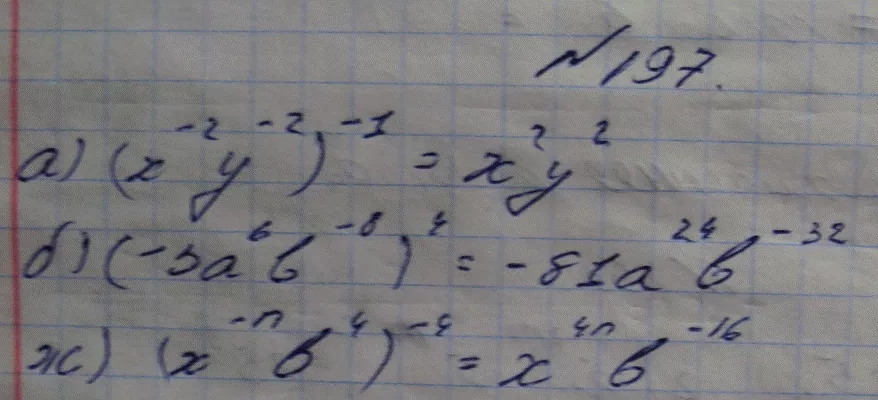 №197.
а) (x⁻²y⁻²)⁻¹ = x²y²
б) (-3a⁶b⁻⁸)⁴ = -81a²⁴b⁻³²
ж) (x⁻ⁿb⁴)⁻⁴ = x⁴ⁿb⁻¹⁶